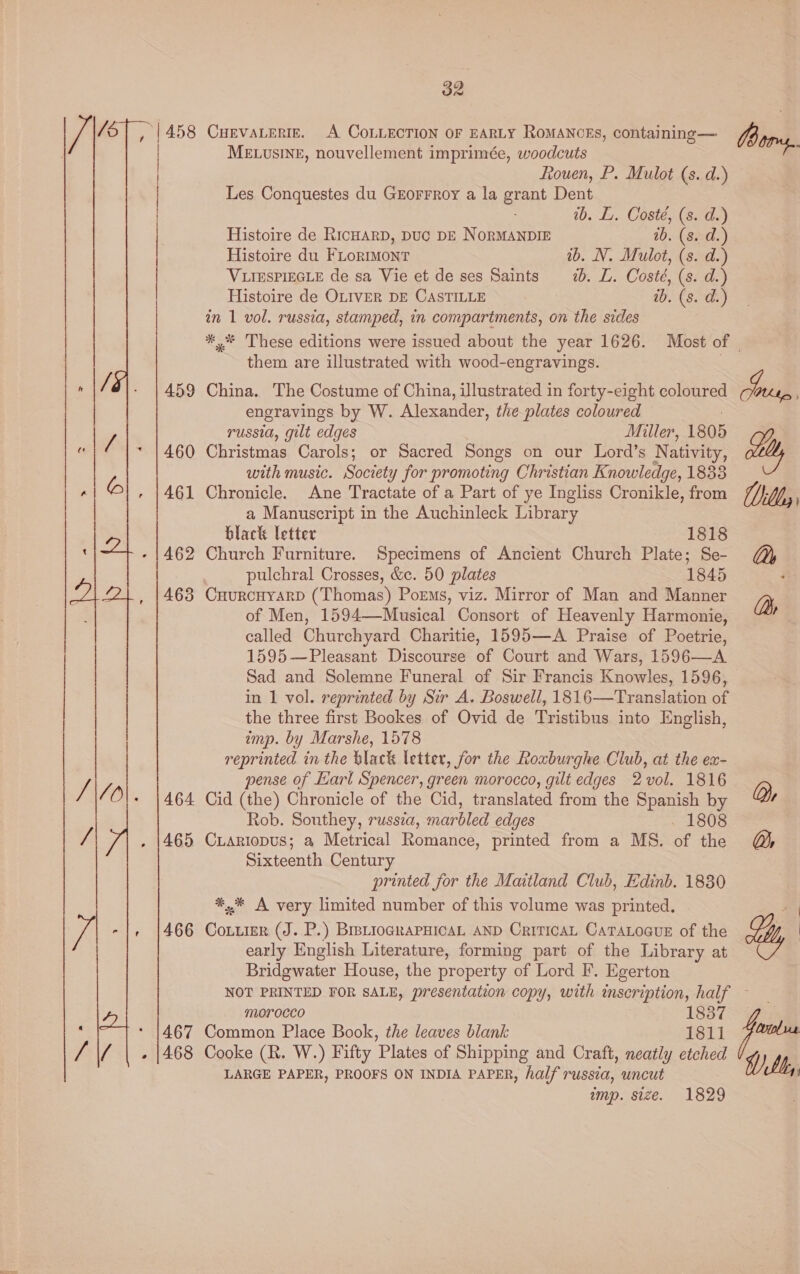 32
458 CHEVALERIE. A COLLECTION OF EARLY ROMANCES, containing—
MELUSINE, nouvellement imprimée, woodcuts
Rouen, P. Mulot (s. d.)
Les Conquestes du GEOFFROY a la grant Dent
ib. L. Costé, (s. d.)
Histoire de RICHARD, DUC DE NORMANDIE ib. (s. d.)
Histoire du FLORIMONT ib. N. Mulot, (s. d.)
VLIESPIEGLE de sa Vie et de ses Saints ib. L. Costé, (s. d.)
Histoire de OLIVER DE CASTILLE ib. (s. d.)
in 1 vol. russia, stamped, in compartments, on the sides
*** These editions were issued about the year 1626. Most of
them are illustrated with wood-engravings.
459 China. The Costume of China, illustrated in forty-eight coloured
engravings by W. Alexander, the plates coloured
russia, gilt edges Miller, 1805
460 Christmas Carols; or Sacred Songs on our Lord's Nativity, Lilly
with music. Society for promoting Christian Knowledge, 1833
461 Chronicle. Ane Tractate of a Part of ye Ingliss Cronikle, from Willis,
a Manuscript in the Auchinleck Library
black letter 1818
462 Church Furniture. Specimens of Ancient Church Plate; Se-
pulchral Crosses, &c. 50 plates 1845
463 CHURCHYARD (Thomas) POEMS, viz. Mirror of Man and Manner
of Men, 1594—Musical Consort of Heavenly Harmonie,
called Churchyard Charitie, 1595—A Praise of Poetrie,
1595—Pleasant Discourse of Court and Wars, 1596—A
Sad and Solemne Funeral of Sir Francis Knowles, 1596,
in 1 vol. reprinted by Sir A. Boswell, 1816—Translation of
the three first Bookes of Ovid de Tristibus into English,
imp. by Marshe, 1578
reprinted in the black letter, for the Roxburghe Club, at the ex-
pense of Earl Spencer, green morocco, gilt edges 2 vol. 1816
1 10 . 464 Cid (the) Chronicle of the Cid, translated from the Spanish by
Rob. Southey, russia, marbled edges 1808
1 7 . 465 CLARIODUS; a Metrical Romance, printed from a MS. of the
Sixteenth Century
printed for the Maitland Club, Edinb. 1830
*** A very limited number of this volume was printed.
7 - , 466 COLLIER (J. P.) BIBLIOGRAPHICAL AND CRITICAL CATALOGUE of the Lilly
early English Literature, forming part of the Library at
Bridgwater House, the property of Lord F. Egerton
NOT PRINTED FOR SALE, presentation copy, with inscription, half
morocco 1837
467 Common Place Book, the leaves blank 1811
468 Cooke (R. W.) Fifty Plates of Shipping and Craft, neatly etched Willis,
LARGE PAPER, PROOFS ON INDIA PAPER, half russia, uncut
imp. size. 1829